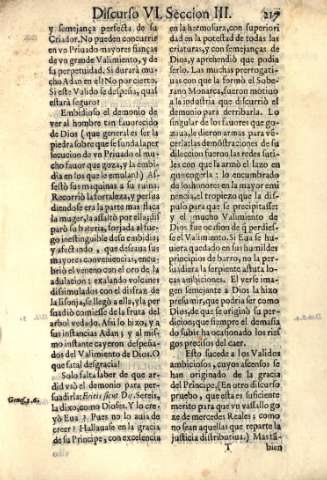 Discurso VI. Seccion III. 217
y semejança perfecta de su
Criador. No pueden concurrir
en vn Priuado mayores fianças
de vn grande Valimiento, y de
su perpetuidad. Si durarà mu-
cho Adan en el? No por cierto.
Si este Valido se despeña, qual
estarà seguro?
Embidioso el demonio de
ver al hombre tin fauorecido
de Dios (que general es ser la
piedra sobre que se funda la per
secucion de vn Priuado el mu-
cho fauor que goza, y la embi-
dia en los que le emulan!) As-
sestò sus maquinas a su ruina.
Recorriò la fortaleza, y persua
diendose era la parte mas flaca
la muger, la assaltò por ella; dis
parò su bateria, forjada al fue-
go inestinguible de su embidia;
y afectando, que deseaua sus
mayores conueniencias, encu-
briò el veneno con el oro de la
adulacion: exalando volcanes
dissimulados con el disfraz de
la lisonja, se llegò a ella, y la per
suadiò comiesse de la fruta del
arbol vedado. Assi lo hizo, y a
sus instancias Adan; y al mis-
mo instante cayeron despeña-
dos del Valimiento de Dios. O
que fatal desgracia!
Solo falta saber de que ar-
did vsò el demonio para per-
suadirla: Eritis sicut Dij. Sereis,
la dixo, como Dioses. Y lo cre-
yò Eua? Pues no lo auia de
creer? Hallauase en la gracia
de su Principe, con excelencia
Genes. 3. 6.
en la hermosura, con superiori
dad en la potestad de todas las
criaturas, y con semejanças de
Dios, y aprehendiò que podia
serlo. Las muchas prerrogati-
uas con que la formò el Sobe-
rano Monarca, fueron motiuo
a la industria que discurriò el
demonio para derribarla. Lo
singular de los fauores que go-
zaua, le dieron armas para ve-
cerla: las demostraciones de su
de su eleccion fueron las redes suti-
les con que la armò el lazo en
que cogerla: lo encumbrado
de los honores en la mayor emi
nencia, el tropiezo que la dis-
puso para que se precipitasse:
y el mucho Valimiento de
Dios fue ocasion de q̃ perdies-
se el Valimiento. Si Eua se hu-
uiera quedado en sus humildes
principios de barro, no la per-
suadiera la serpiente astuta lo-
cas ambiciones. El verse ima-
gen semejante a Dios la hizo
presumir, que podria ser como
Dios, de que se originò su per-
dicion; que siempre el demasia
do subir ha ocasionado los ries
gos precisos del caer.
Esto sucede a los Validos
ambiciosos, cuyos ascensos se
han originado de la gracia
del Principe. (En otro discurso
pruebo, que esta es suficiente
merito para que vn vassallo go-
ze de mercedes Reales; como
no sean aquellas que reparte la
justicia distributiua.)
T
bien